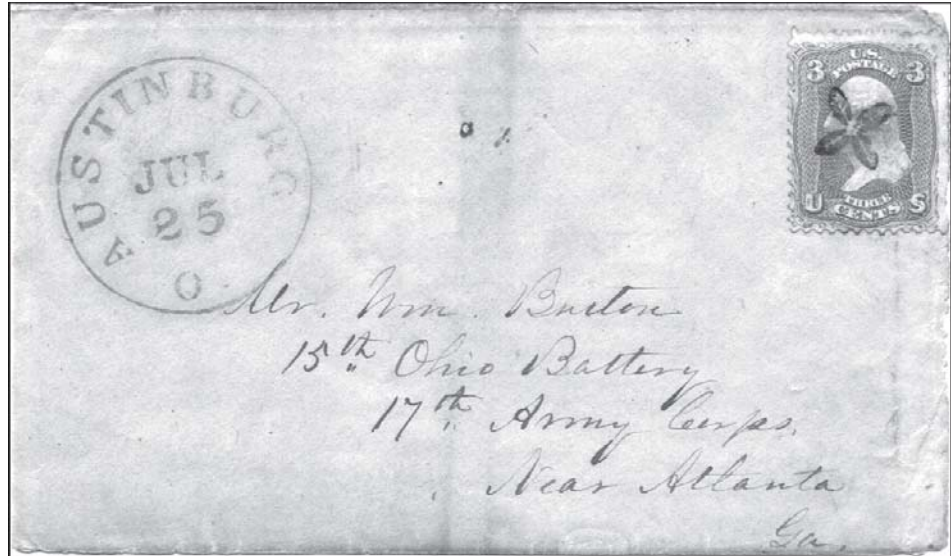 AUSTINBURG
JUL
25
O
3 U.S. POSTAGE 3
U THREE CENTS S
Mr. Wm. Burton
15th Ohio Battery
17th Army Corps.
Near Atlanta
Ga.